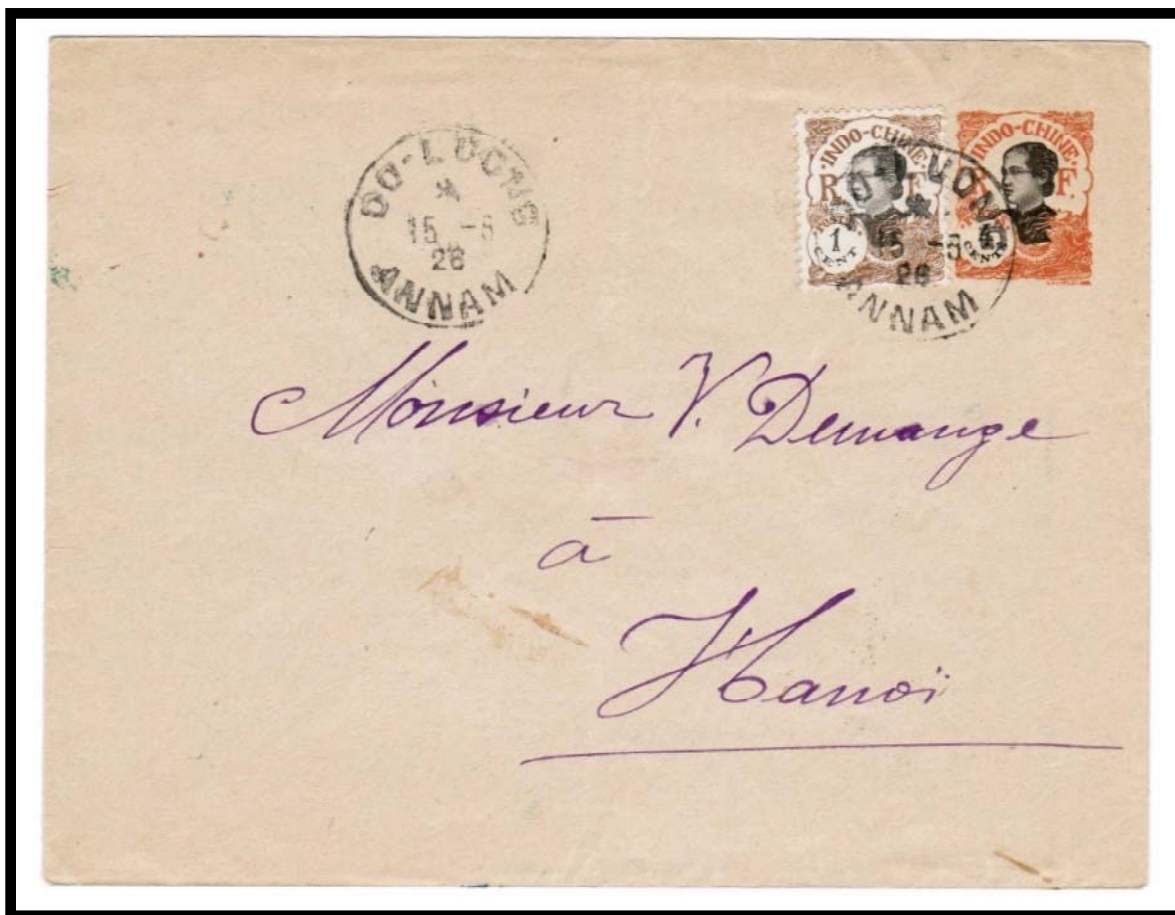 DO-LUONG
15 -5
26
ANNAM
INDO-CHINE
R F
POSTES
1
CENT
INDO-CHINE
R F.
4
CENTS
15 -5
26
ANNAM
Monsieur V. Demange
à
Hanoï